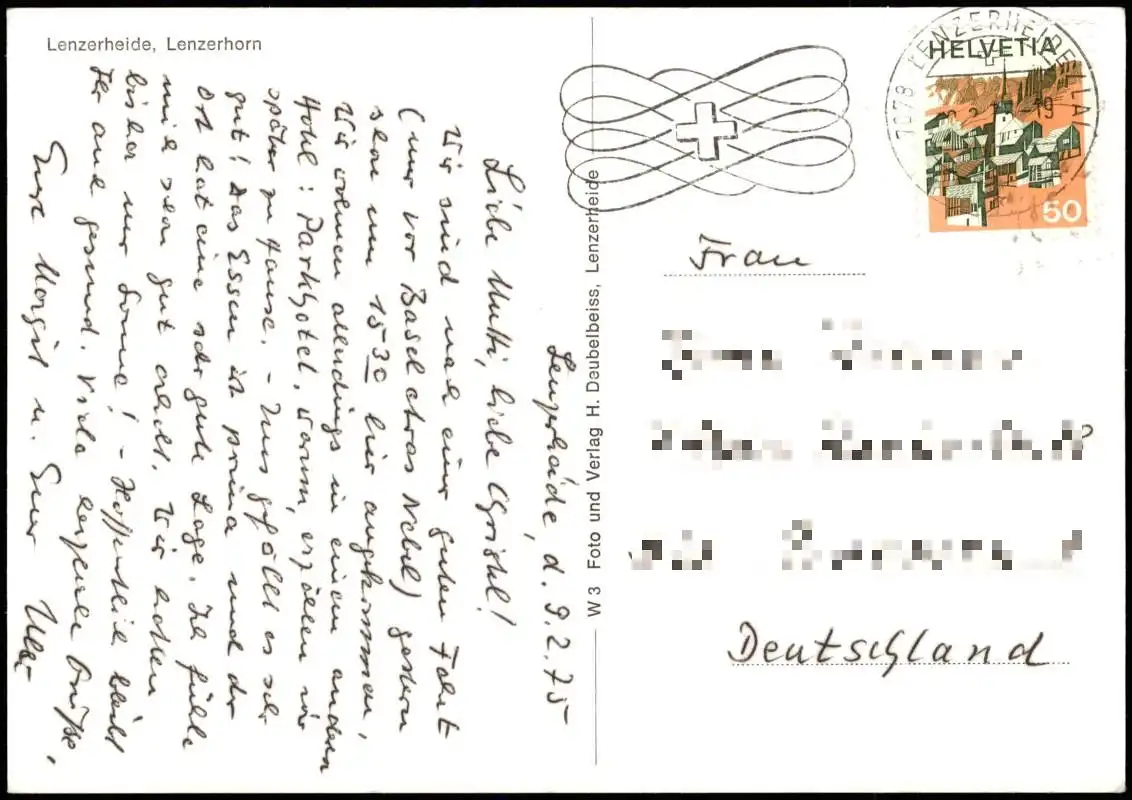 Lenzerheide, Lenzerhorn
Lenzerheide, d. 9.2.75
Liebe Mutti, liebe Christl!
Wir sind nach einer guten Fahrt
(nur vor Basel etwas Nebel) gestern
schon um 15 30 hier angekommen,
Wir wohnen allerdings in einem andern
Hotel: Parkhotel. Warum, erzählen wir
später zu Hause. – Uns gefällt es sehr
gut! Das Essen ist prima und der
Ort hat eine sehr gute Lage. Ich fühle
mich schon gut erholt. Wir hatten
bisher nur Sonne! – Hoffentlich bleibt
Ihr auch gesund. Viele herzliche Grüße,
Eure Margit u. Euer
W 3 Foto und Verlag H. Deubelbeiss, Lenzerheide
7078 LENZERHEIDE / LAI
HELVETIA
50
Frau
Deutschland